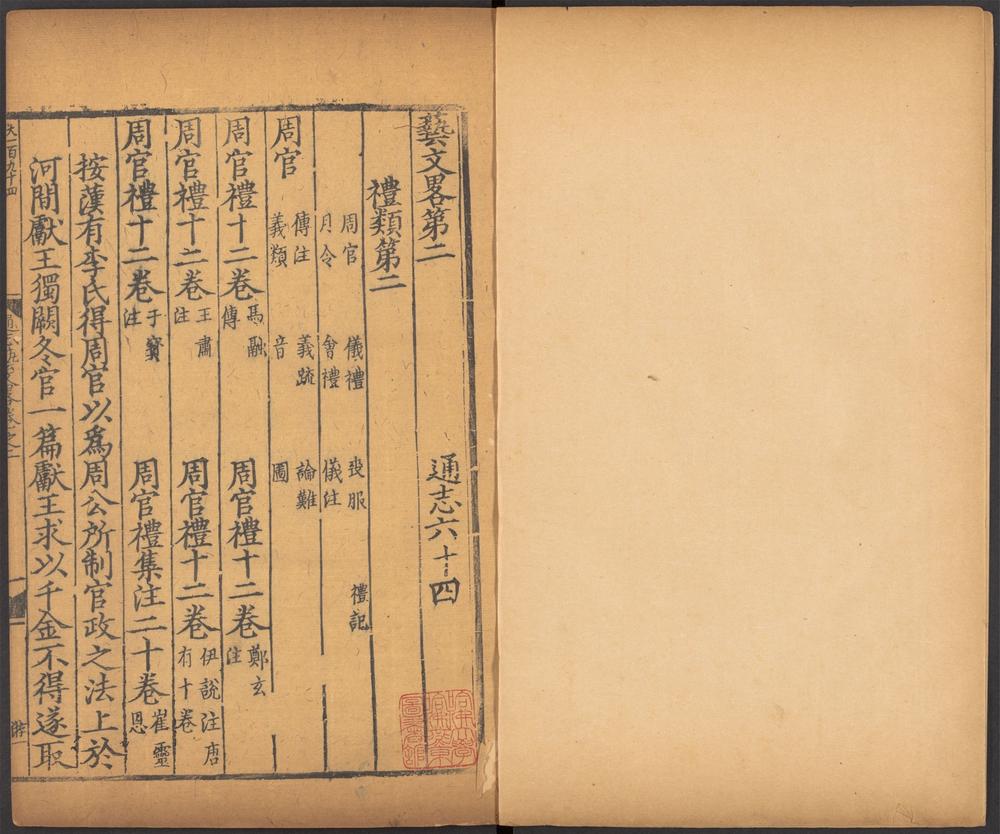 藝文畧第二 通志六十四
禮類第二
周官 儀禮 喪服 禮記
月令 會禮 儀注
周官 傳注 義疏 論難
義類 音 圖
周官禮十二卷 馬融傳 周官禮十二卷 鄭玄注
周官禮十二卷 王肅注 周官禮十二卷 伊說注唐有十卷
周官禮十二卷 于寶注 周官禮集注二十卷 崔靈恩
按漢有李氏得周官以爲周公所制官政之法上於
河間獻王獨闕冬官一篇獻王求以千金不得遂取